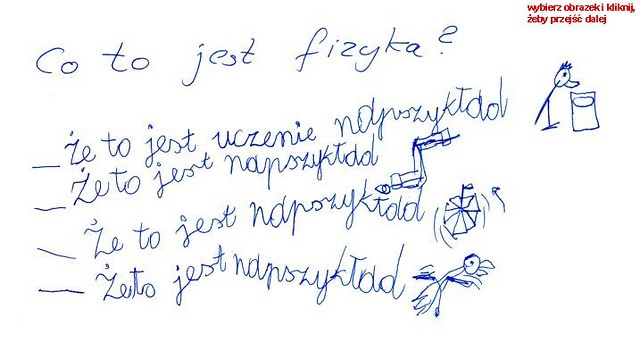 wybierz obrazek i kliknij,
żeby przejść dalej
Co to jest fizyka?
— Że to jest uczenie napszykład
— Żeto jest napszykład
— Że to jest napszykład
— Żeto jest napszykład